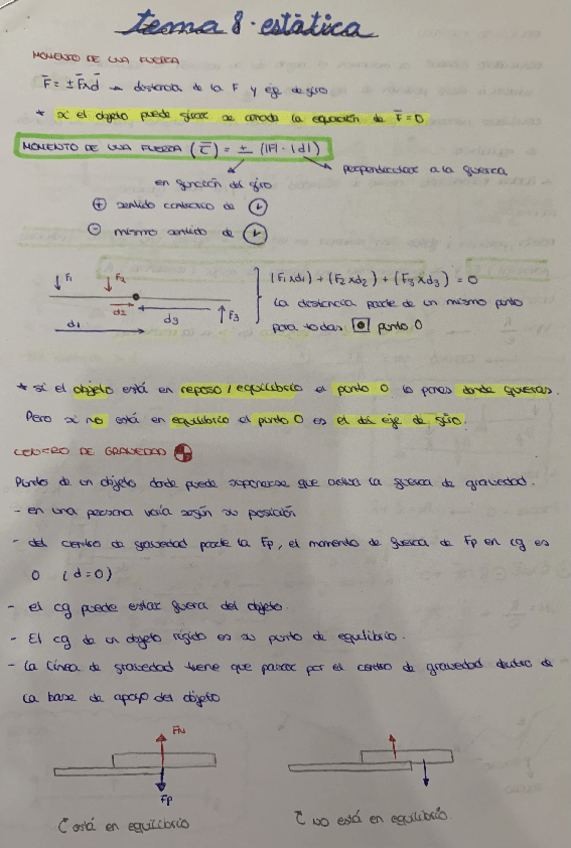 tema 8. estática
MOMENTO DE UNA FUERZA
F̄ = ± F̄xd̄ → distancia de la F y eje de giro
* si el objeto puede girar se añade la equación de F̄=0.
MOMENTO DE UNA FUERZA (τ̄) = ± (|F| · |d|)
perpendicular a la fuerza
en función del giro
⊕ sentido contrario de
⊖ mismo sentido de
F1
F2
d2
d3
F3
d1
(F1xd1) + (F2xd2) + (F3xd3) = 0
la distancia parte de un mismo punto
para todas punto 0
* si el objeto está en reposo/equilibrio el punto 0 lo pones donde quieras.
Pero si no está en equilibrio el punto 0 es el del eje de giro.
CENTRO DE GRAVEDAD
Punto de un objeto donde puede suponerse que actúa la fuerza de gravedad.
- en una persona varía según su posición
- del centro de gravedad parte la Fp, el momento de fuerza de Fp en cg es
0 (d=0)
- el cg puede estar fuera del objeto.
- El cg de un objeto rígido es su punto de equilibrio.
- la línea de gravedad tiene que pasar por el centro de gravedad dentro de
la base de apoyo del objeto
FN
Fp
está en equilibrio
no está en equilibrio